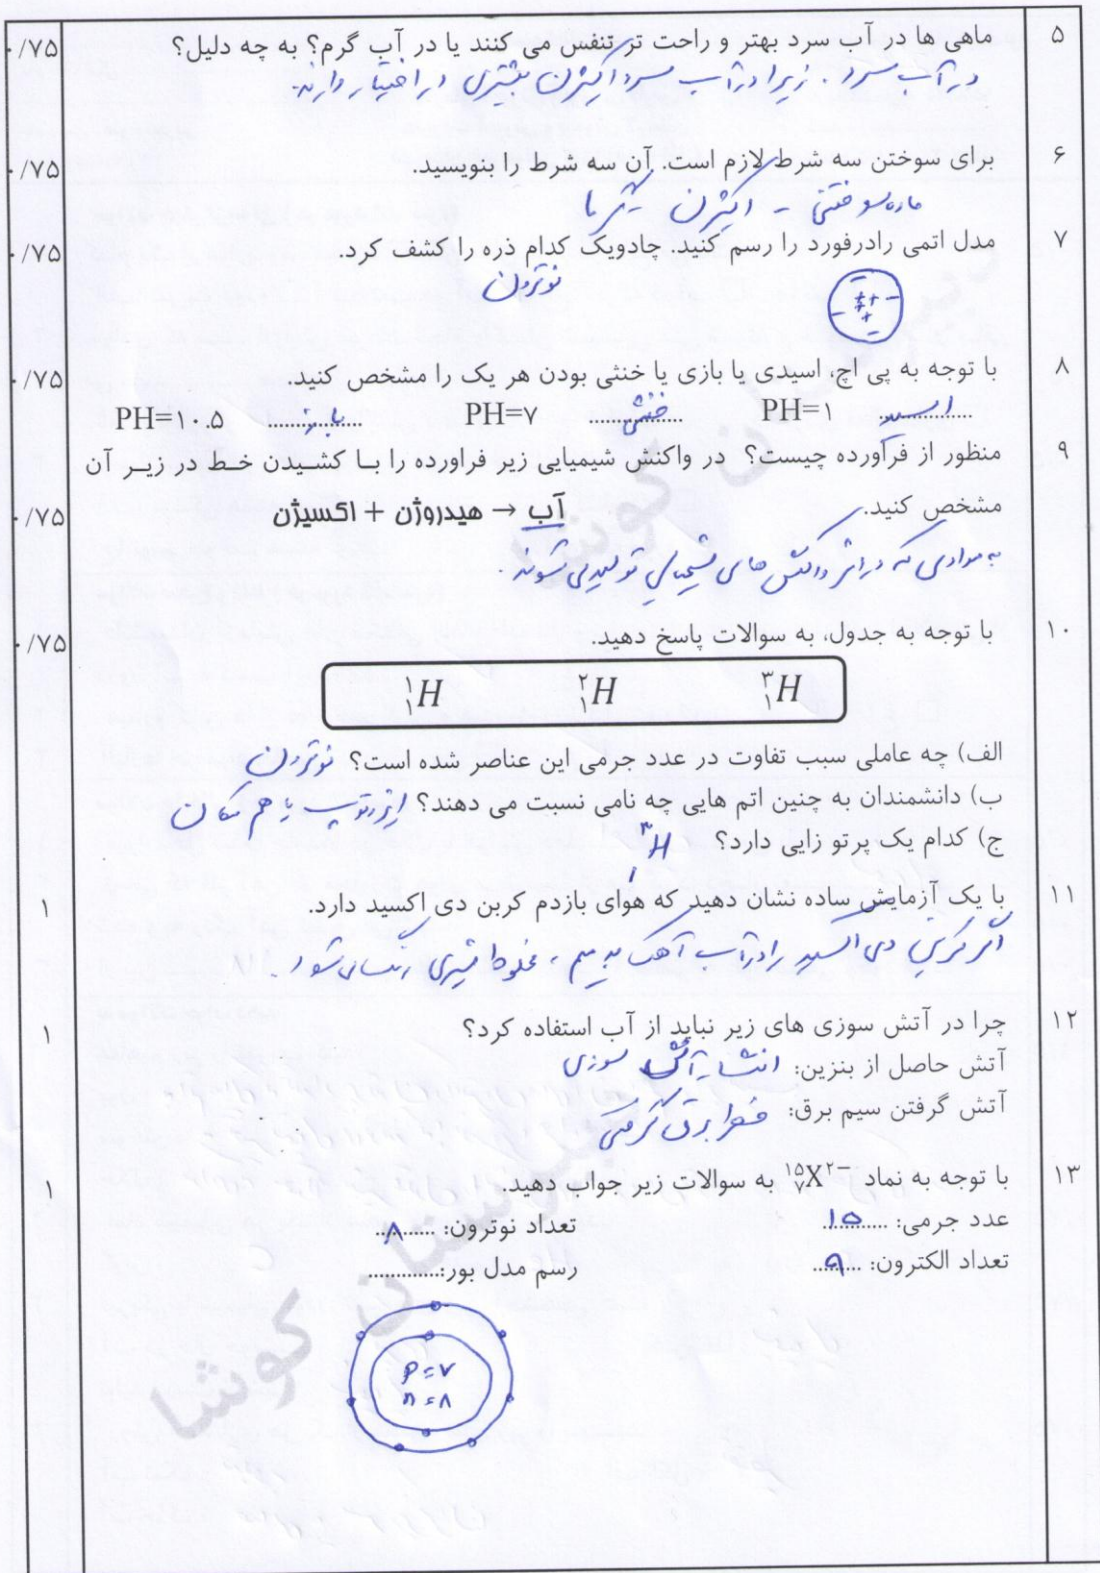 ۵ ماهی ها در آب سرد بهتر و راحت تر تنفس می کنند یا در آب گرم؟ به چه دلیل؟ ۰/۷۵
در آب سرد. زیرا در آب سرد اکسیژن بیشتری در اختیار دارند.
۶ برای سوختن سه شرط لازم است. آن سه شرط را بنویسید. ۰/۷۵
ماده سوختنی - اکسیژن - گرما
۷ مدل اتمی رادرفورد را رسم کنید. چادویک کدام ذره را کشف کرد. ۰/۷۵
نوترون
۸ با توجه به پی اچ، اسیدی یا بازی یا خنثی بودن هر یک را مشخص کنید. ۰/۷۵
PH=۱ اسید PH=۷ خنثی PH=۱۰.۵ باز
۹ منظور از فرآورده چیست؟ در واکنش شیمیایی زیر فراورده را بـا کشـیدن خـط در زیـر آن
مشخص کنید. آب → هیدروژن + اکسیژن ۰/۷۵
به موادی که در اثر واکنش های شیمیایی تولید می شوند.
۱۰ با توجه به جدول، به سوالات پاسخ دهید. ۰/۷۵
¹₁H ²₁H ³₁H
الف) چه عاملی سبب تفاوت در عدد جرمی این عناصر شده است؟ نوترون
ب) دانشمندان به چنین اتم هایی چه نامی نسبت می دهند؟ ایزوتوپ یا هم مکان
ج) کدام یک پرتو زایی دارد؟ ³₁H
۱۱ با یک آزمایش ساده نشان دهید که هوای بازدم کربن دی اکسید دارد. ۱
اگر کربن دی اکسید را در آب آهک بدمیم، مخلوط شیری رنگ می شود.
۱۲ چرا در آتش سوزی های زیر نباید از آب استفاده کرد؟ ۱
آتش حاصل از بنزین: انتشار آتش سوزی
آتش گرفتن سیم برق: خطر برق گرفتگی
۱۳ با توجه به نماد ¹⁵₇X²⁻ به سوالات زیر جواب دهید. ۱
عدد جرمی: ۱۵ تعداد نوترون: ۸
تعداد الکترون: ۹ رسم مدل بور:..............
p=۷
n=۸
دبیرستان کوشا
دبیرستان کوشا